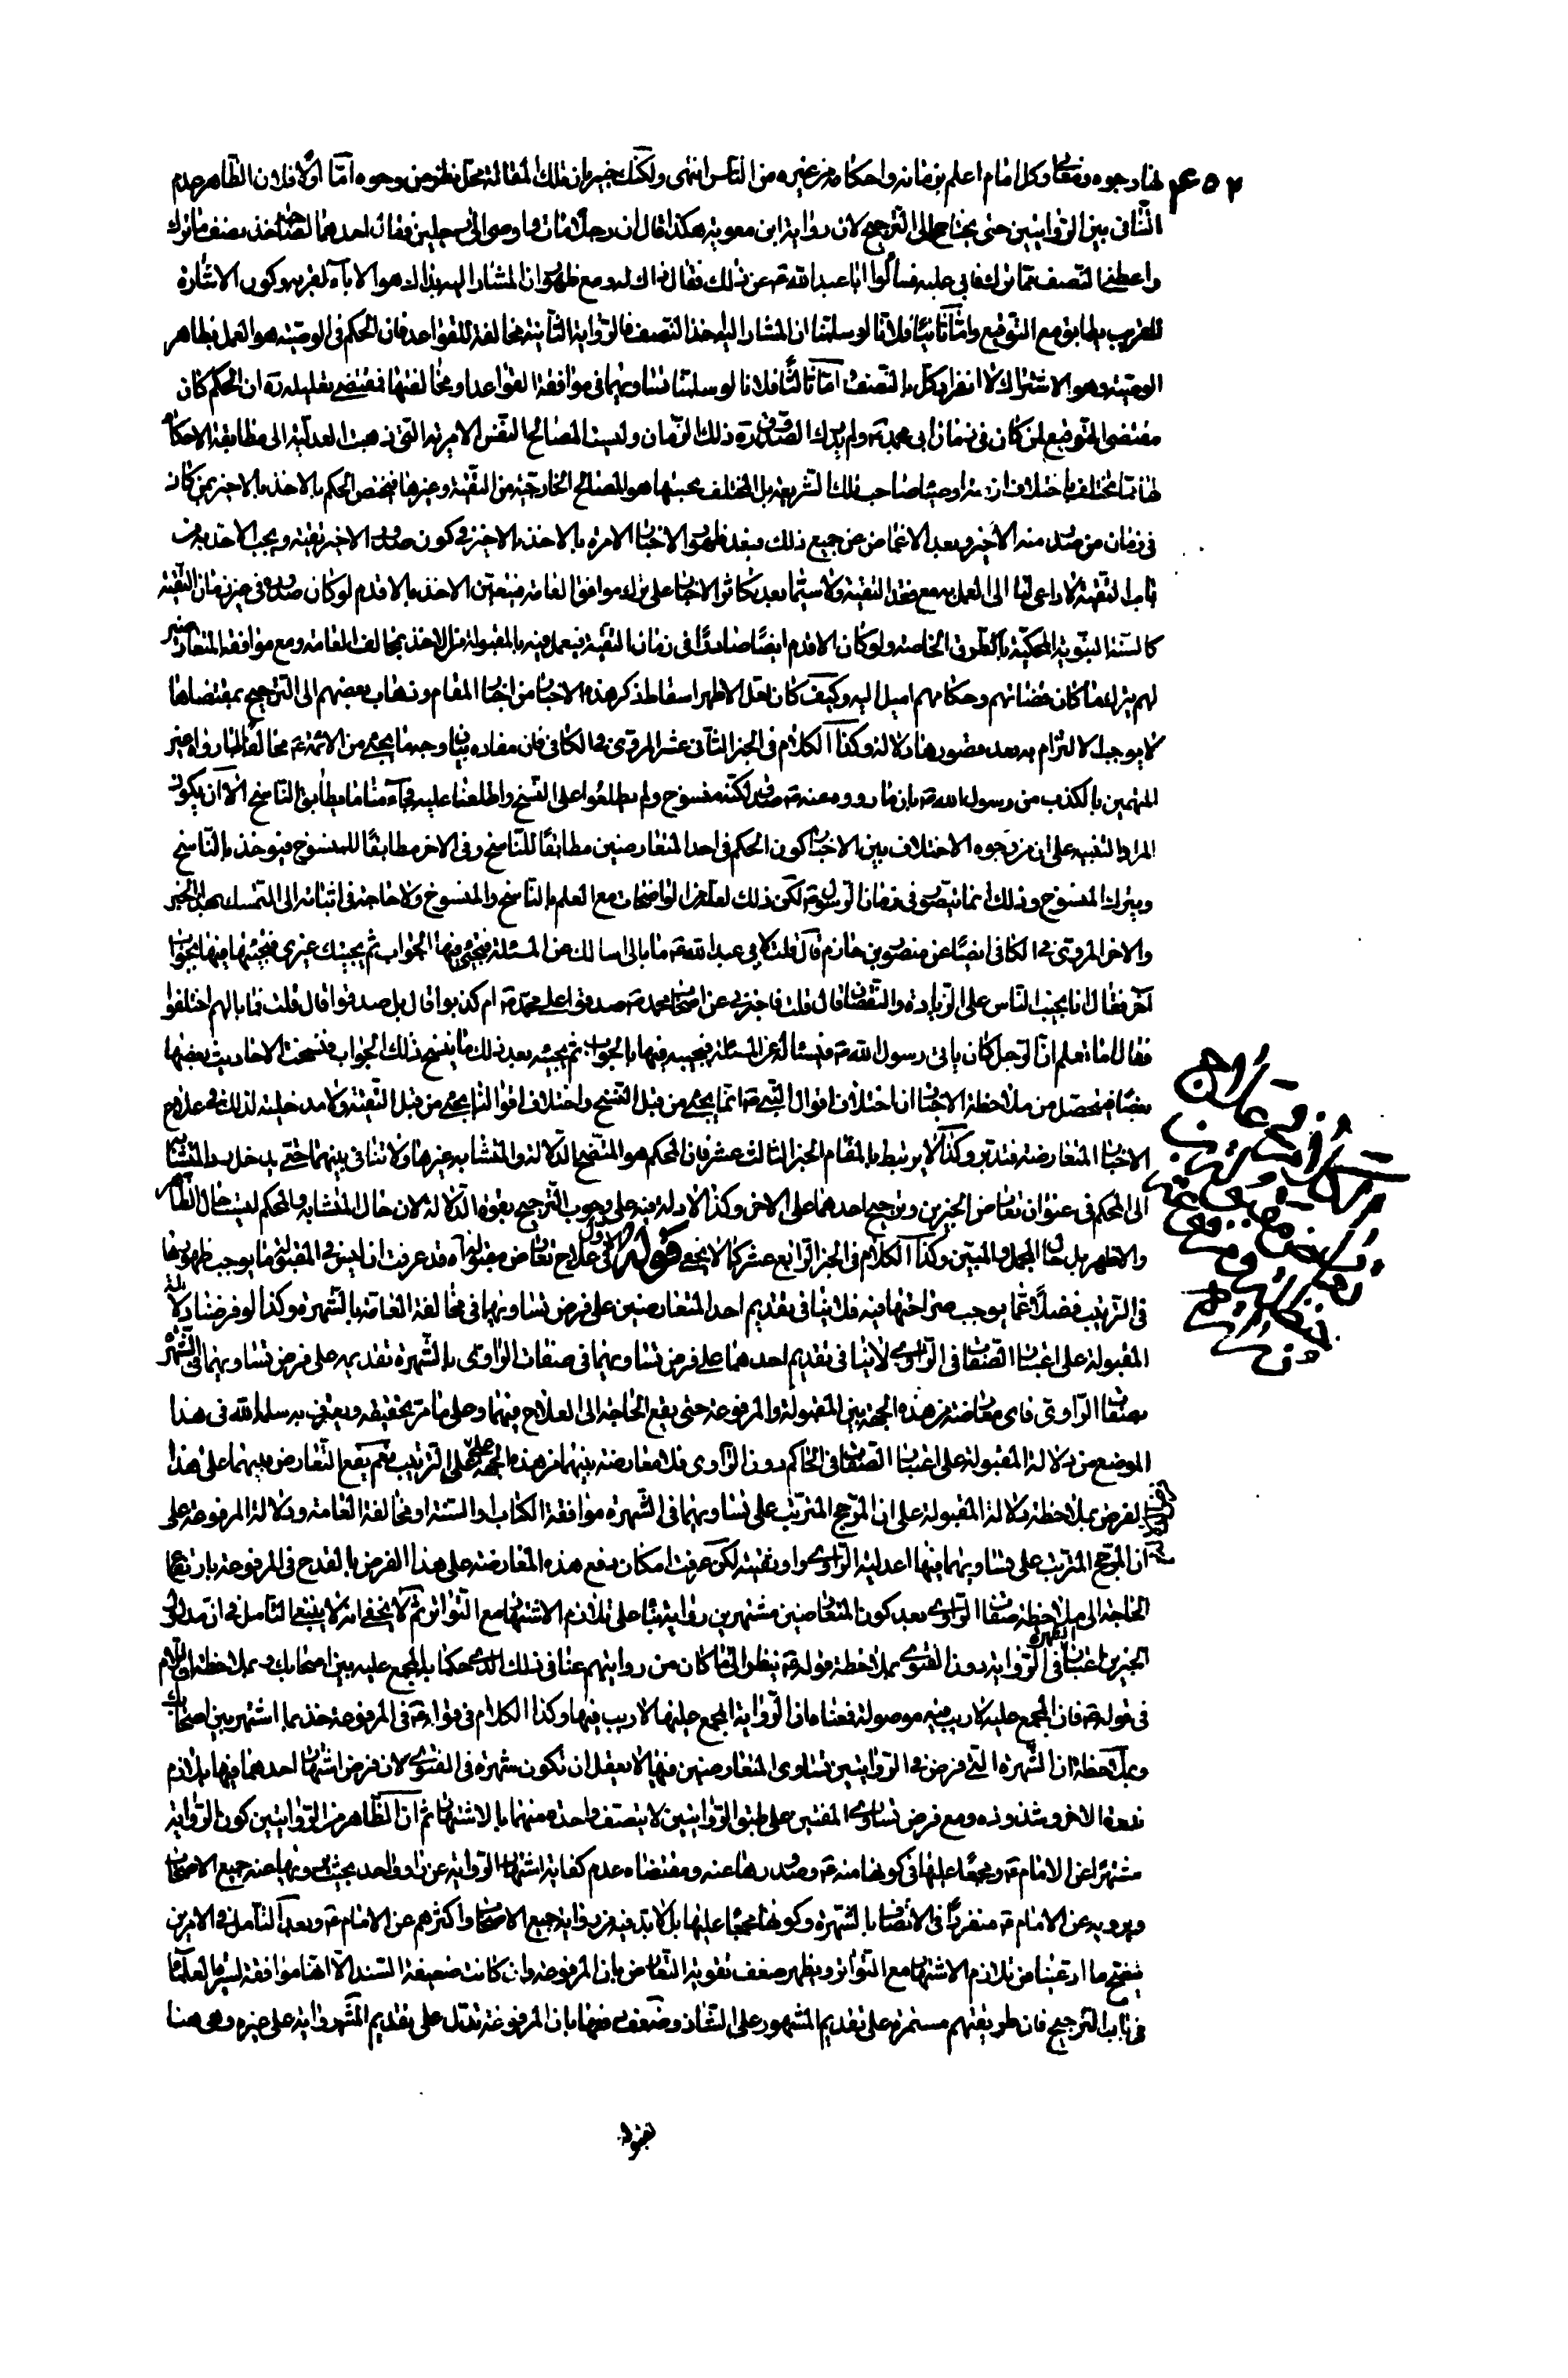 لها وجوه ومعان وكل امام اعلم بزمانه واحكامه من غيره من الناس انتهى ولكنك خبير بان تلك المقالة محل نظر من وجوه امّا اوّلا فلان الظاهر عدم
التنافى بين الروايتين حتى يحتاج الى الترجيح لان رواية ابن معوية هكذا قال ان رجلا مات واوصى الى رجلين فقال احدهما لصاحبه خذ نصف ما ترك
واعطنى النصف مما ترك فابى عليه فسألوا ابا عبد الله ع عن ذلك فقال ذاك له ومع ظهور ان المشار اليه بذاك هو الاباء لقربه وكون الاشارة
للقريب يطابق مع التوقيع وامّا ثانيًا فلانا لو سلمنا ان المشار اليه اخذ النصف فالرواية الثانية مخالفة للقواعد فان الحكم فى الوصية هو العمل بظاهر
الوصية وهو الاشتراك لا انفراد كل بالنصف امّا ثالثًا فلانا لو سلمنا تساويهما فى موافقة القواعد او مخالفتها فمقتضى تعليله ره ان الحكم كان
مقتضى التوقيع لمن كان فى زمان ابى محمد ع ولم يدرك الصدوق ره ذلك الزمان وليست المصالح النفس الامرية التى ذهبت العدلية الى مطابقة الاحكام
لها مما يختلف باختلاف ازمنة اوصياء صاحب تلك الشريعة بل المختلف بحسبها هو المصالح الخارجية من التقية وغيرها فيختص الحكم بالاخذ بالاخير بمن كان
فى زمان من صدر منه الاخير وبعد الاغماض عن جميع ذلك فبعد ظهور الاخبار الامرة بالاخذ بالاخير فى كون صدور الاخير تقية ويجب الاخذ به من
باب التقية لا داعى لنا الى العمل به مع فقد التقية ولا سيّما بعد تكاثر الاخبار على ترك موافق العامة فيتعين الاخذ بالاقدم لو كان صدوره فى غير زمان التقية
كالسنة النبوية المحكية بالطرق الخاصة ولو كان الاقدم ايضًا صادرًا فى زمان التقية فيعمل فيه بالمقبولة من الاخذ بمخالف العامة ومع موافقة المتعارضين
لهم يترك ما كان قضاتهم وحكامهم اميل اليه وكيف كان لعل الاظهر اسقاط ذكر هذه الاخبار من اخبار المقام وذهاب بعضهم الى الترجيح بمقتضاها
لا يوجب الالتزام به بعد قصورها دلالة وكذا الكلام فى الخبر الثانى عشر المروى فى الكافى فان مفاده بيان وجه ما يجئ من الائمة ع مخالفًا لما رواه غير
المتهمين بالكذب من رسول الله ص بان ما رووه عنه ص صدق لكنه منسوخ ولم يطلعوا على النسخ واطلعنا عليه فجاء منا ما يطابق الناسخ الا ان يكون
المراد التنبيه على ان من وجوه الاختلاف بين الاخبار كون الحكم فى احد المتعارضين مطابقًا للناسخ وفى الاخر مطابقًا للمنسوخ فيؤخذ بالناسخ
ويترك المنسوخ وذلك انما يتصور فى زمان الرسول ص لكن ذلك لعله من الواضحات مع العلم بالناسخ والمنسوخ ولا حاجة فى اثباته الى التمسك بهذا الخبر
والاخر المروى فى الكافى ايضًا عن منصور بن حازم قال قلت لابى عبد الله ع ما بالى اسالك عن المسئلة فتجيبنى فيها الجواب ثم يجيئك غيرى فتجيبه فيها بجواب
آخر فقال انا نجيب الناس على الزيادة والنقصان قال قلت فاخبرنى عن اصحاب محمد ص صدقوا على محمد ص ام كذبوا قال بل صدقوا قال قلت فما بالهم اختلفوا
فقال اما تعلم انّ الرجل كان ياتى رسول الله ص فيسئاله عن المسئلة فيجيبه فيها بالجواب ثم يجيئه بعد ذلك ما ينسخ ذلك الجواب فنسخت الاحاديث بعضها
بعضًا فيتحصل من ملاحظة الاخبار ان اختلاف اقوال النبى ص انما يجئ من قبل النسخ واختلاف اقوالنا يجئ من قبل التقية ولا مدخلية لذلك فى علاج
الاخبار المتعارضة فتدبر وكذا لا يرتبط بالمقام الخبر الثالث عشر فان المحكم هو المتضح الدلالة والمتشابه غيرها ولا تنافى بينهما حتى يدخل رد المتشابه
الى المحكم فى عنوان تعارض الخبرين وترجيح احدهما على الاخر وكذا لا دلالة فيه على وجوب الترجيح بقوة الدلالة لان حال المتشابه والمحكم ليست حال الظاهر
والاظهر بل حال المجمل والمبين وكذا الكلام فى الخبر الرابع عشر كما لا يخفى قوله الاول فى علاج تعارض مقبولة اه قد عرفت ان ليس فى المقبولة ما يوجب ظهورها
فى الترتيب فضلًا عمّا يوجب صراحتها فيه فلا ينافى تقديم احد المتعارضين على فرض تساويهما فى مخالفة العامة بالشهرة وكذا لو فرضنا دلالة
المقبولة على اعتبار الصفات فى الراوى لا ينافى تقديم احدهما على فرض تساويهما فى صفات الراوى بالشهرة تقديمه على فرض تساويهما فى الشهرة
بصفات الراوى فاى معارضة من هذه الجهة بين المقبولة والمرفوعة حتى يقع الحاجة الى العلاج فيهما وعلى ما مرّ تحقيقه ويعترف به سلمه الله فى هذا
الموضع من دلالة المقبولة على اعتبار الصفات فى الحاكم دون الراوى فلا معارضة بينهما من هذه الجهة على الترتيب نعم يقع التعارض بينهما على هذا
الفرض بملاحظة دلالة المقبولة على ان المرجح المترتب على تساويهما فى الشهرة موافقة الكتاب والسنة او مخالفة العامة ودلالة المرفوعة على
ان المرجح المترتب على تساويهما فيها اعدلية الراوى واوثقيته لكن عرفت امكان دفع هذه المعارضة على هذا الفرض بالقدح فى المرفوعة بارتفاع
الحاجة الى ملاحظة صفات الراوى بعد كون المتعارضين مشتهرين رواية بناء على تلازم الاشتهار مع التواتر ثم لا يخفى انه لا ينبغى التامل فى ان مدلول
الخبرين اعتبار الشهرة فى الرواية دون الفتوى بملاحظة قوله ع ينظر الى ما كان من روايتهم عنا فى ذلك الذى حكما به المجمع عليه بين اصحابك وبملاحظة ان اللام
فى قوله ع فان المجمع عليه لا ريب فيه موصولة فمعناه ان الرواية المجمع عليها لا ريب فيها وكذا الكلام فى قوله ع فى المرفوعة خذ بما اشتهر بين اصحابك
وبملاحظة ان الشهرة التى فرض فى الروايتين تساوى المتعارضين فيها لا يعقل ان تكون شهرة فى الفتوى لان فرض اشتهار احدهما فيها يلازم
ندرة الاخر وشذوذه ومع فرض تساوى المفتين على طبق الروايتين لا يتصف واحدة منهما بالاشتهار ثم ان الظاهر من الروايتين كون الرواية
مشتهرًا عن الامام ع ومجمعًا عليها فى كونها منه ع وصدورها عنه ومقتضاه عدم كفاية اشتهار الرواية عن راو واحد بحيث يرويها عنه جميع الاصحاب
ويرويه عن الامام ع منفردًا فى الاتصاف بالشهرة وكونها مجمعًا عليها بل لابد فيه من رواية جميع الاصحاب او اكثرهم عن الامام ع وبعد التامل فى الامرين
يتضح ما ادعينا من تلازم الاشتهار مع التواتر ويظهر ضعف تقوية التعارض بان المرفوعة وان كانت ضعيفة السند الا انها موافقة لسيرة العلماء
فى باب الترجيح فان طريقتهم مستمرة على تقديم المشهور على الشاذ وضعف دفعها بان المرفوعة تدل على تقديم المشهور رواية على غيره وهى هنا